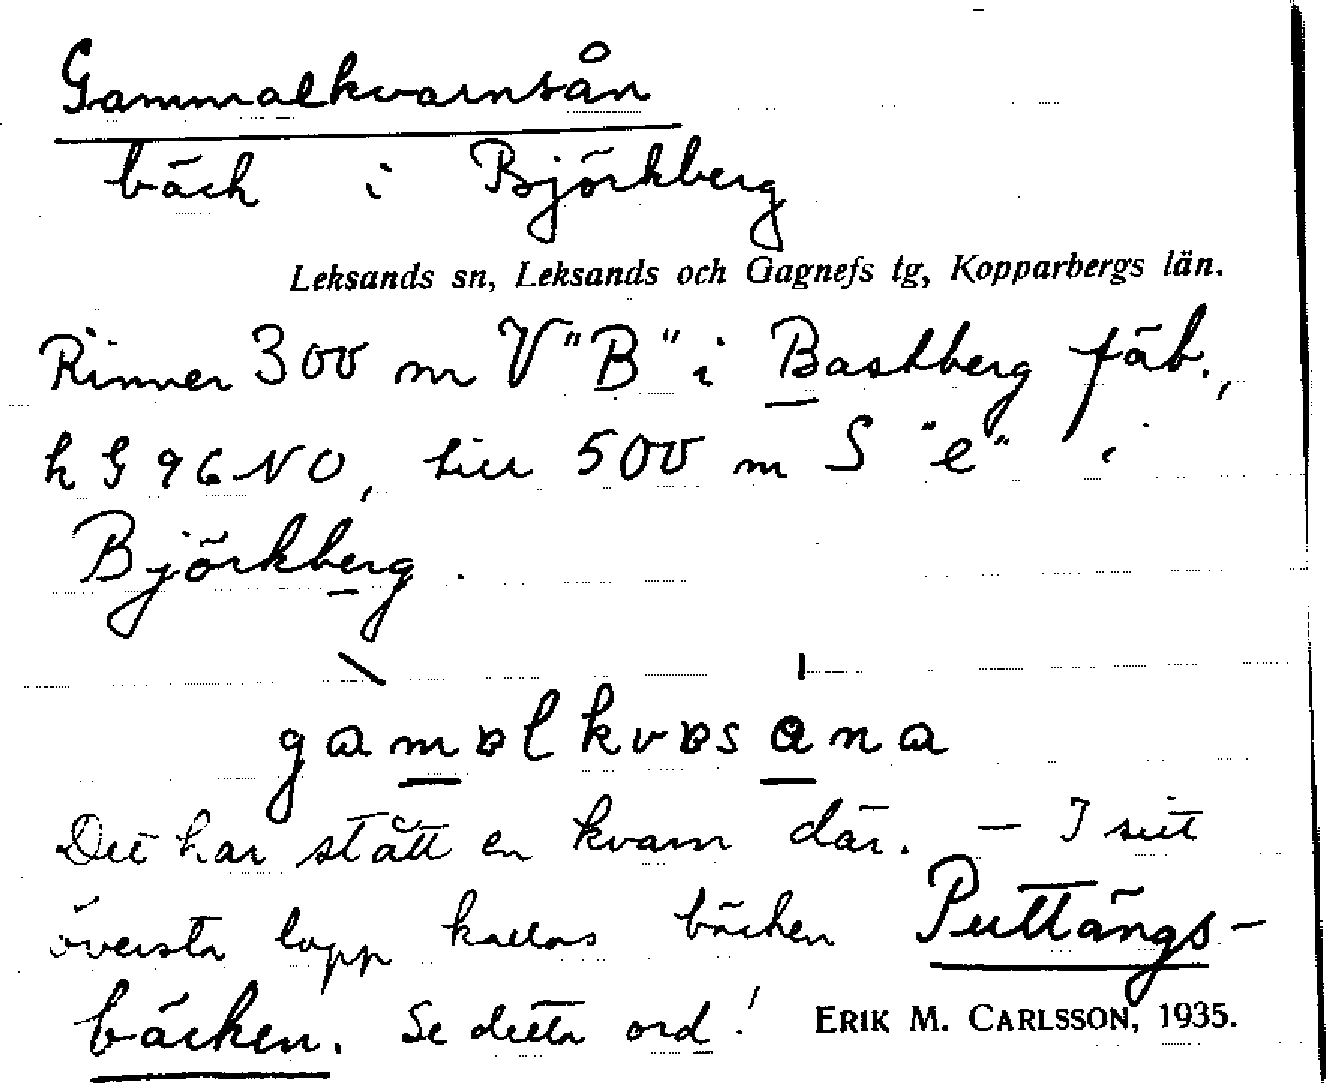 Gammalkvarnsån
bäck i Björkberg
Leksands sn, Leksands och Gagnefs tg, Kopparbergs län.
Rinner 300 m V "B" i Bastberg fäb.,
k G 96 NO, till 500 m S "e" i
Björkberg.
gamɒlkvɒsana
Det har stått en kvarn där. — I sitt
översta lopp kallas bäcken Puttängs-
bäcken. Se detta ord! ERIK M. CARLSSON, 1935.